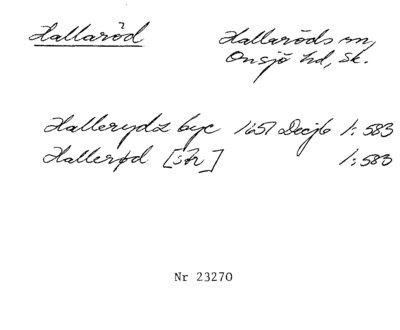 Hallaröd Hallaröds sn,
Onsjö hd, Sk.
Hallerydz bye 1651 Decjb 1:583
Hallerød [sk] 1:583
Nr 23270